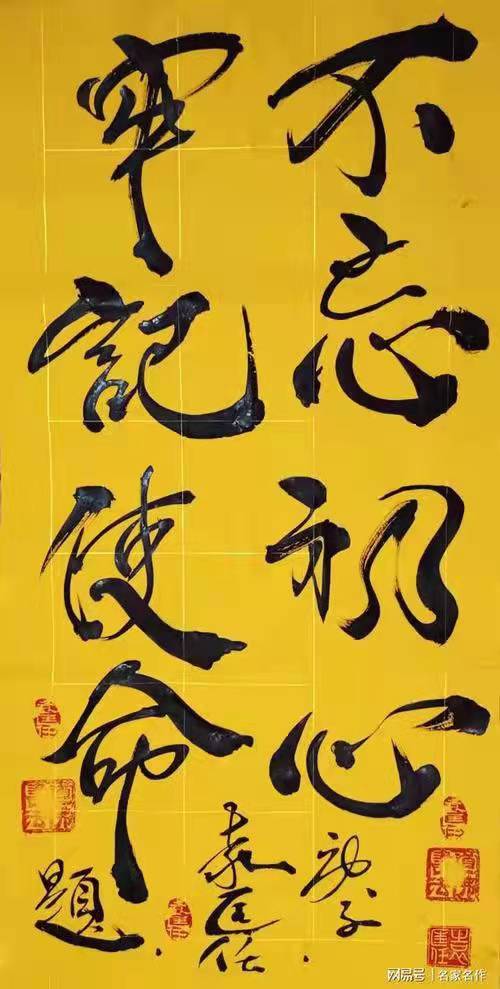 不忘初心
牢記使命
袁匡任
題
网易号 | 名家名作